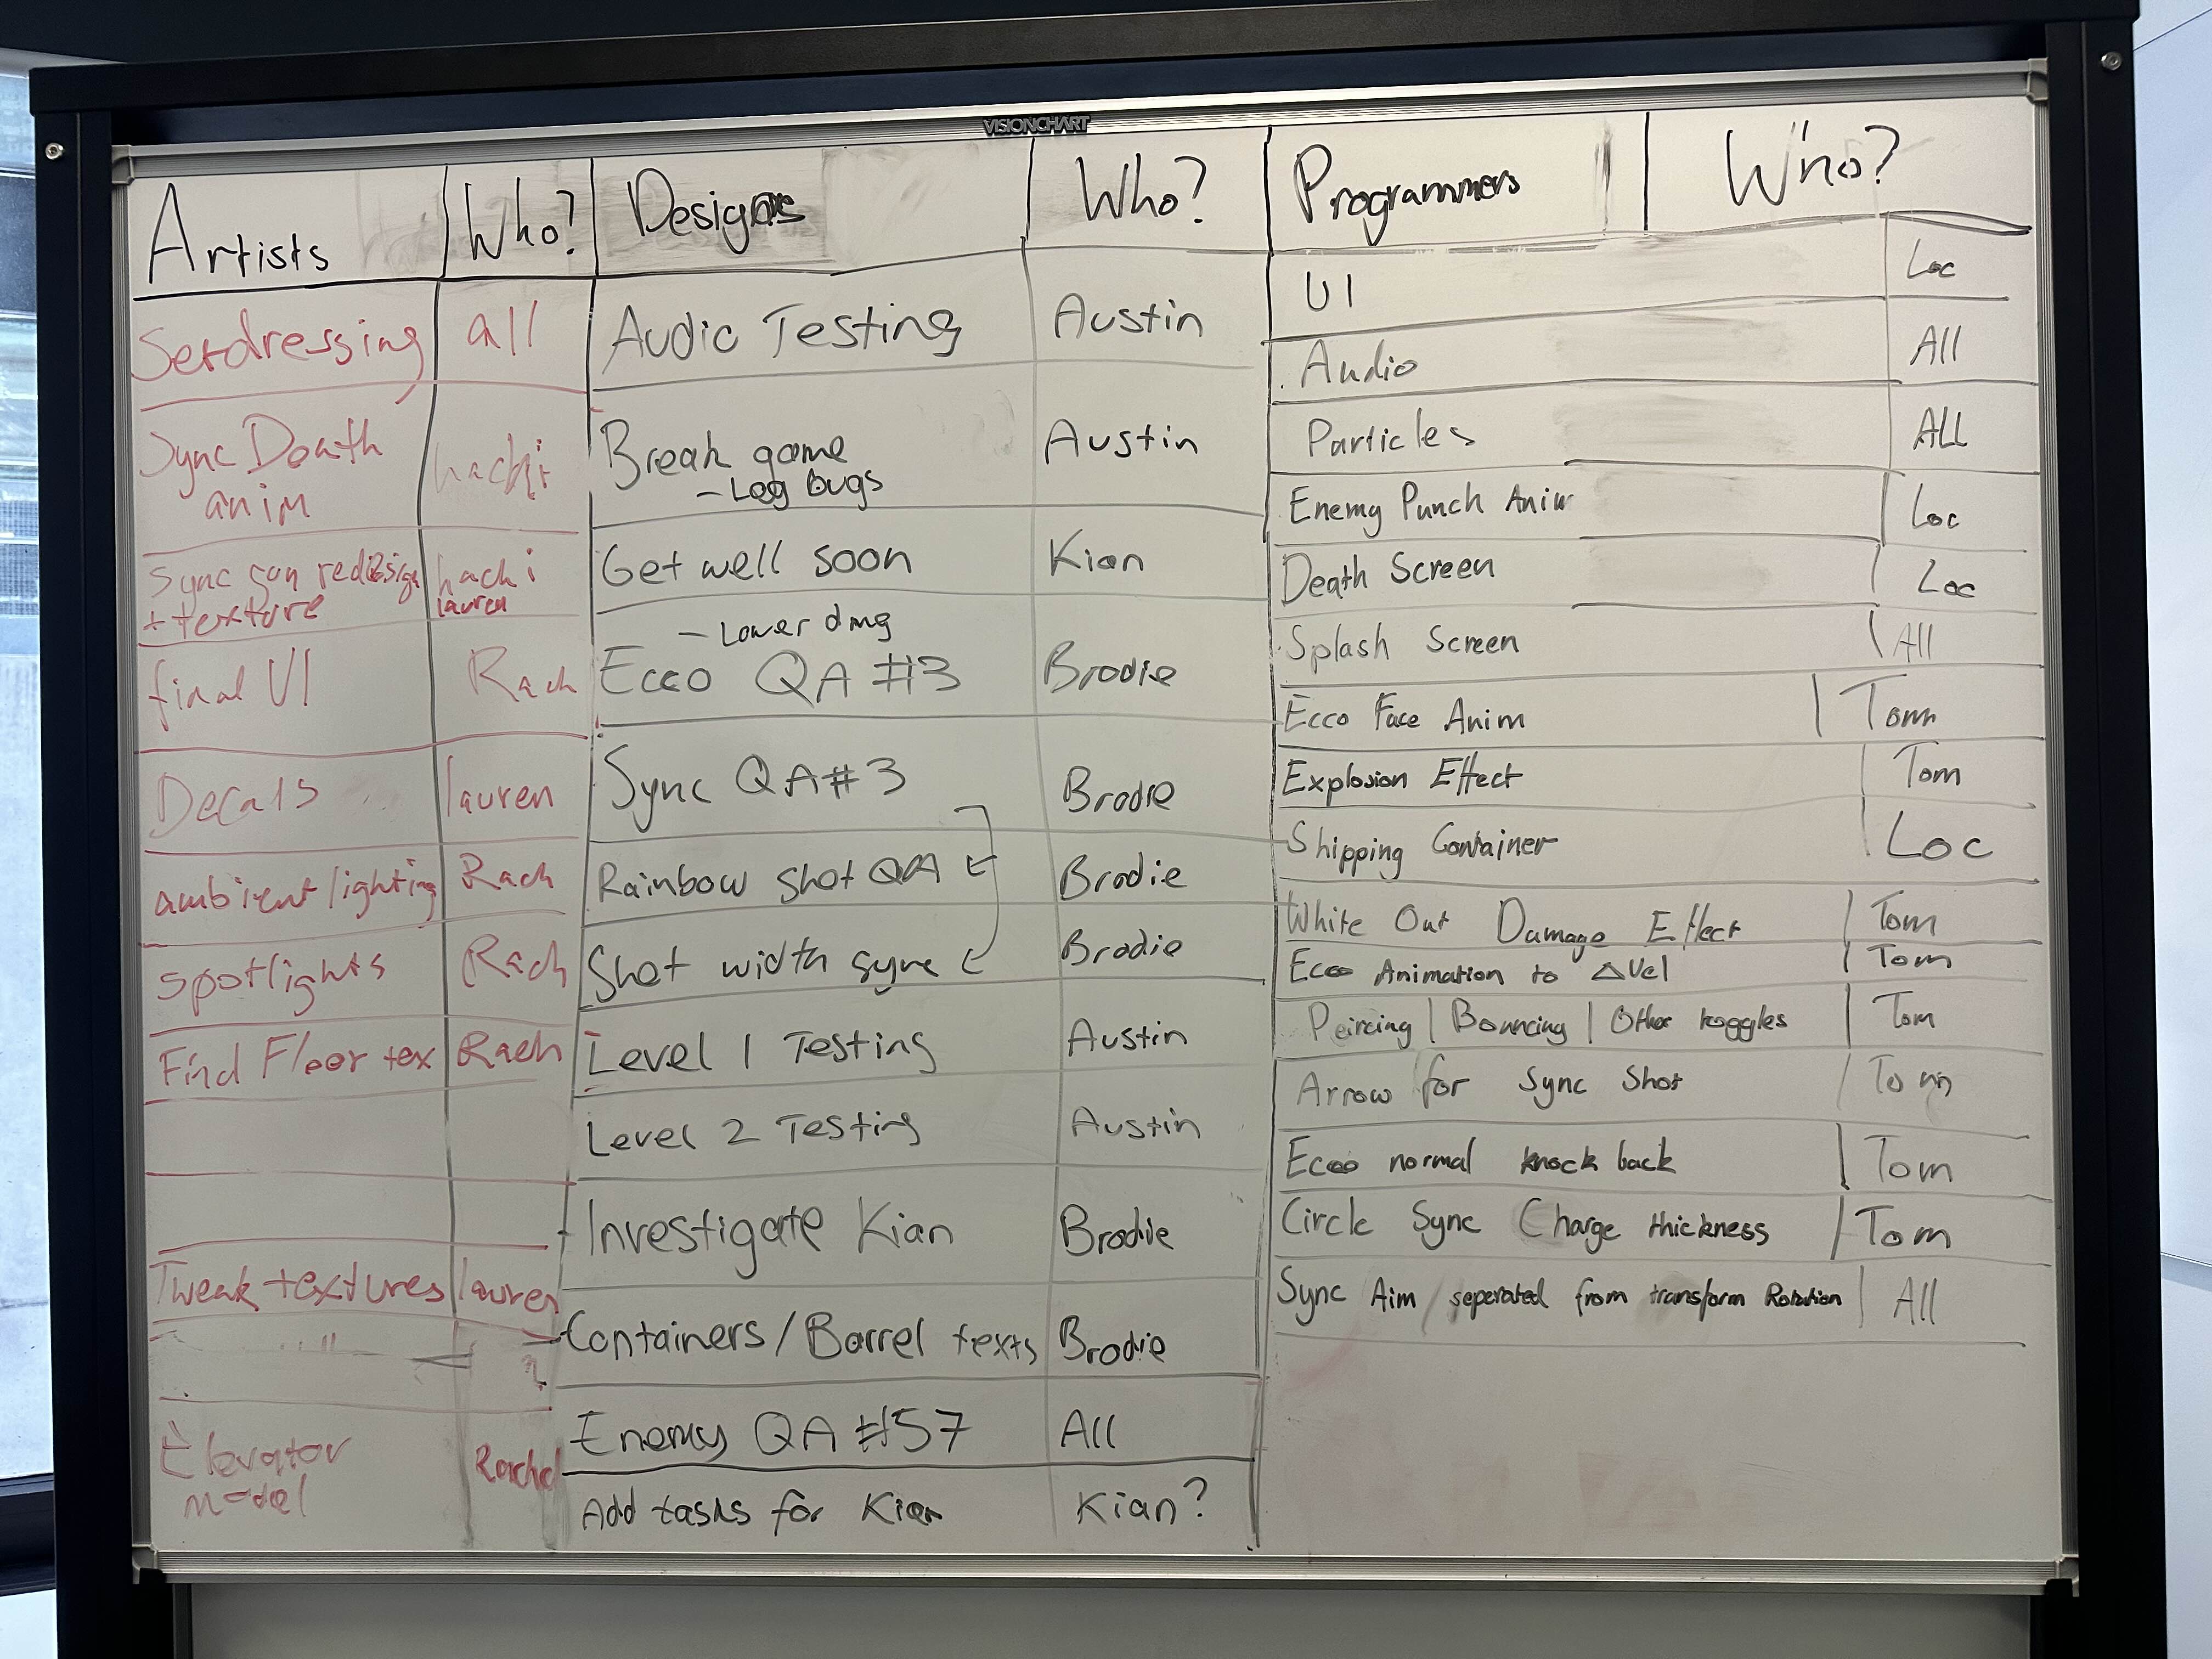 VISIONCHART
Artists
Who?
Setdressing
all
Sync Death
anim
hachi
Sync gun redisign
+ texture
hachi
lauren
final UI
Rach
Decals
lauren
ambient lighting
Rach
spotlights
Rach
Find Floor tex
Rach
Tweak textures
lauren
Elevator
model
Rachel
Who?
Audio Testing
Austin
Break game
- Log bugs
Austin
Get well soon
Kian
- Lower dmg
Ecco QA #3
Brodie
Sync QA #3
Brodie
Rainbow shot QA
Brodie
Shot width sync
Brodie
Level 1 Testing
Austin
Level 2 Testing
Austin
Investigate Kian
Brodie
Containers / Barrel texts
Brodie
Enemy QA #57
All
Add tasks for Kian
Kian?
Programmers
Who?
UI
Loc
Audio
All
Particles
ALL
Enemy Punch Anim
Loc
Death Screen
Loc
Splash Screen
All
Ecco Face Anim
Tom
Explosion Effect
Tom
Shipping Container
Loc
White Out Damage Effect
Tom
Ecco Animation to ΔVel
Tom
Peircing | Bouncing | Other toggles
Tom
Arrow for Sync Shot
Tom
Ecco normal knock back
Tom
Circle Sync Charge thickness
Tom
Sync Aim / seperated from transform Rotation
All